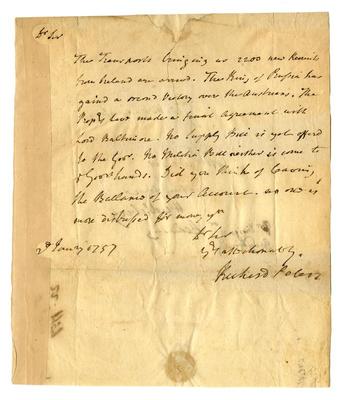 Dr Sir
The Transports bringing us 2200 new Recruits
from Ireland are arrived. The King of Prussia has
gaind a second Victory over the Austrians. The
Propr's have made a final Agreement with
Lord Baltimore. No Supply Bill is yet offerd
to the Govr. No Militia Bill neither is come to
Govrs hands. Did you think of leaving
the Ballance of your Account. no one is
more distressed for money yn
Dr Sir
Yr affectionately
Richard Peters
2d Janry 1757